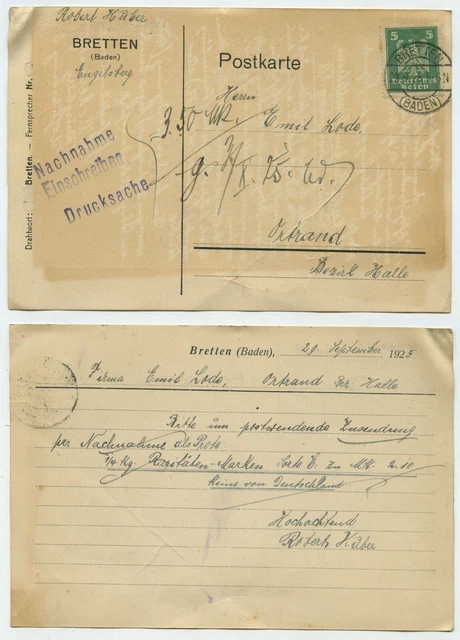 Robert Huber
BRETTEN
(Baden)
Engelsberg
Postkarte
5 5
Deutsches
Reich
BRETTEN
(BADEN)
Drahtwort: Bretten. – Fernsprecher Nr.
Nachnahme
Einschreiben
Drucksache
Herrn
3.50 Mk. Emil Lode,
Ortrand
Bezirk Halle
Bretten (Baden), 29. September 1925
Firma Emil Lode, Ortrand Bez. Halle
Bitte um postwendende Zusendung
per Nachnahme als Probe:
1/4 Kg. Raritäten-Marken Sorte E. zu Mk. 2.10
keine von Deutschland
Hochachtend
Robert Huber